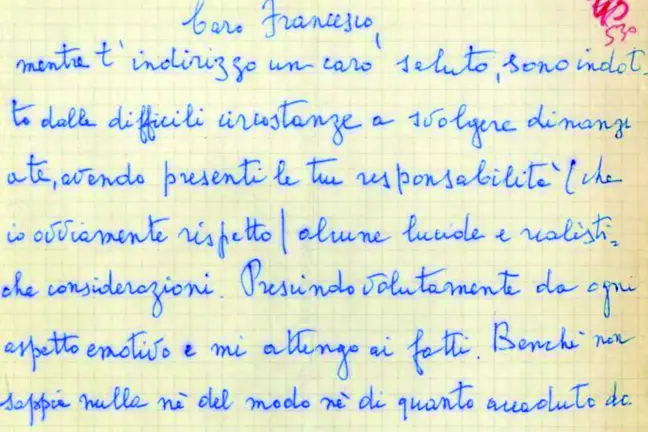 530
Caro Francesco,
mentre t'indirizzo un caro saluto, sono indot-
to dalle difficili circostanze a svolgere dinanzi
a te, avendo presenti le tue responsabilità (che
io ovviamente rispetto) alcune lucide e realisti=
che considerazioni. Prescindo volutamente da ogni
aspetto emotivo e mi attengo ai fatti. Benchè non
sappia nulla nè del modo nè di quanto accaduto do